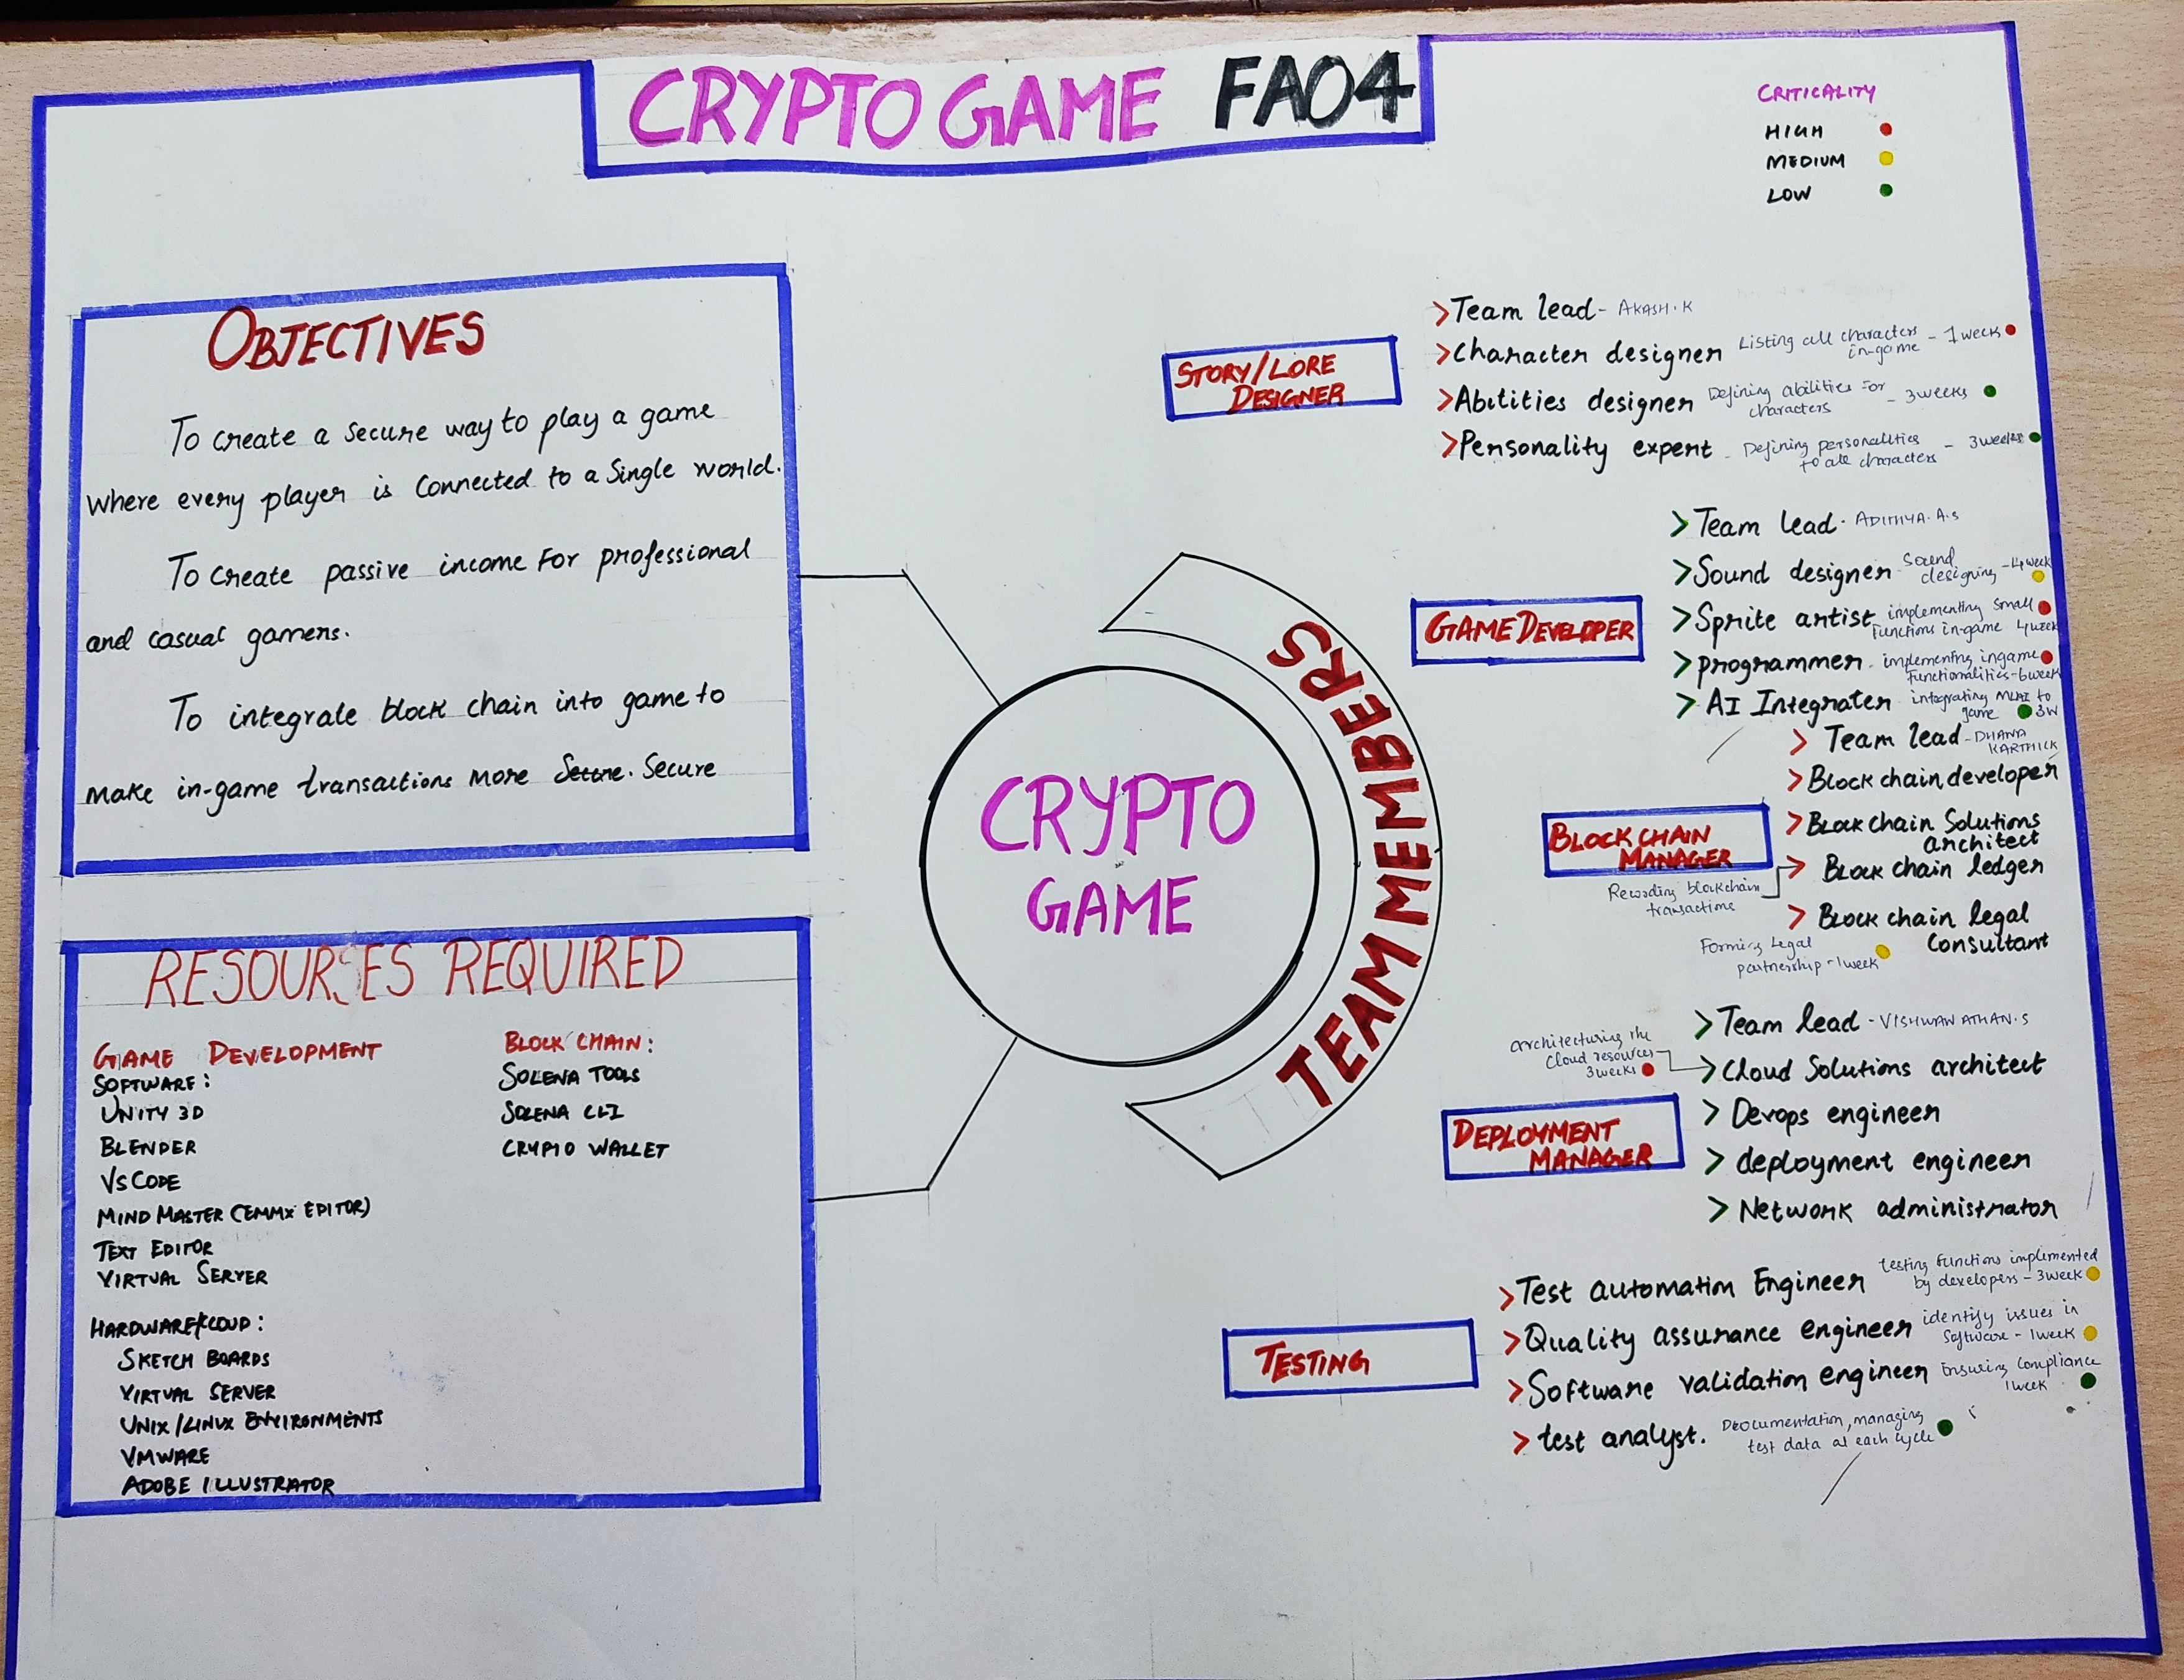 CRYPTO GAME FA04
CRITICALITY
HIGH
MEDIUM
LOW
OBJECTIVES
To create a secure way to play a game
where every player is connected to a single world.
To create passive income for professional
and casual gamers.
To integrale block chain into game to
make in-game transactions more Secure. Secure
RESOURSES REQUIRED
GAME DEVELOPMENT
SOFTWARE:
UNITY 3D
BLENDER
VS CODE
MIND MASTER (EMMX EDITOR)
TEXT EDITOR
VIRTUAL SERVER
HARDWARE/CLOUD:
SKETCH BOARDS
VIRTUAL SERVER
UNIX/LINUX ENVIRONMENTS
VMWARE
ADOBE ILLUSTRATOR
BLOCK CHAIN:
SOLENA TOOLS
SOLENA CLI
CRYPTO WALLET
CRYPTO
GAME
TEAM MEMBERS
STORY/LORE
DESIGNER
>Team lead - AKASH.K
>Character designer Listing all characters
in-game - 1 week
>Abilities designer Defining abilities for
characters - 3 weeks
>Personality expert - Defining personalities
to all characters - 3 weeks
GAME DEVELOPER
>Team lead - ADITHYA.A.S
>Sound designer Sound
designing - 4 week
>Sprite artist implementing small
functions in-game 4 week
>programmer - implementing ingame
functionalities - 6 week
>AI Integrater integrating ML/AI to
game 3W
BLOCK CHAIN
MANAGER
> Team lead - DHANA
KARTHICK
>Block chain developer
>Block chain Solutions
architect
> Block chain ledger
Recording blockchain
transactions
> Block chain legal
Consultant
Forming Legal
partnership - 1 week
DEPLOYMENT
MANAGER
>Team lead - VISHWANATHAN.S
>Cloud Solutions architect
architecturing the
cloud resources
3 weeks
> Devops engineer
> deployment engineer
> Network administrator
TESTING
>Test automation Engineer testing functions implemented
by developers - 3 week
>Quality assurance engineer identify issues in
Software - 1 week
>Software validation engineer Ensuring compliance
1 week
> test analyst. Documentation, managing
test data at each cycle